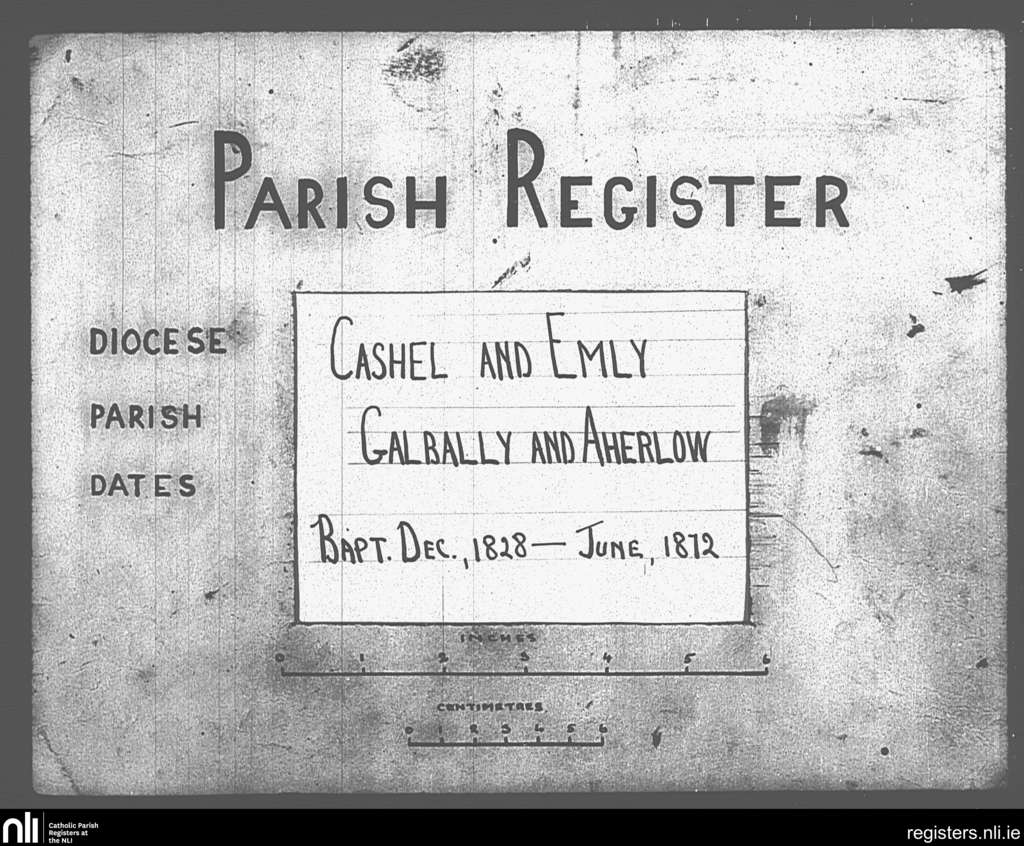 PARISH REGISTER
DIOCESE CASHEL AND EMLY
PARISH GALBALLY AND AHERLOW
DATES BAPT. DEC., 1828 — JUNE, 1872
INCHES
0 1 2 3 4 5 6
CENTIMETRES
0 1 2 3 4 5 6
nli Catholic Parish
Registers at
the NLI
registers.nli.ie